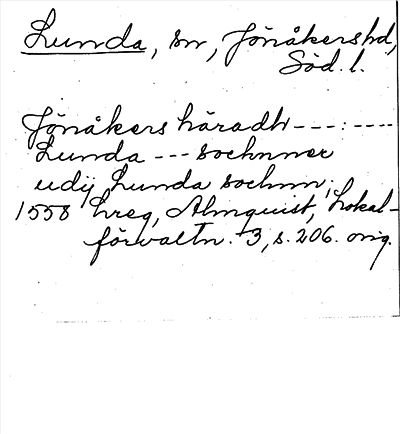 Lunda, sn, Jönåkers hd,
Söd. l.
Jönåkers häradh ---:----
Lunda --- sochnner
udij Lunda sochnn;
1558 hreg, Almquist, Lokal-
förvaltn. 3, s. 206. orig.